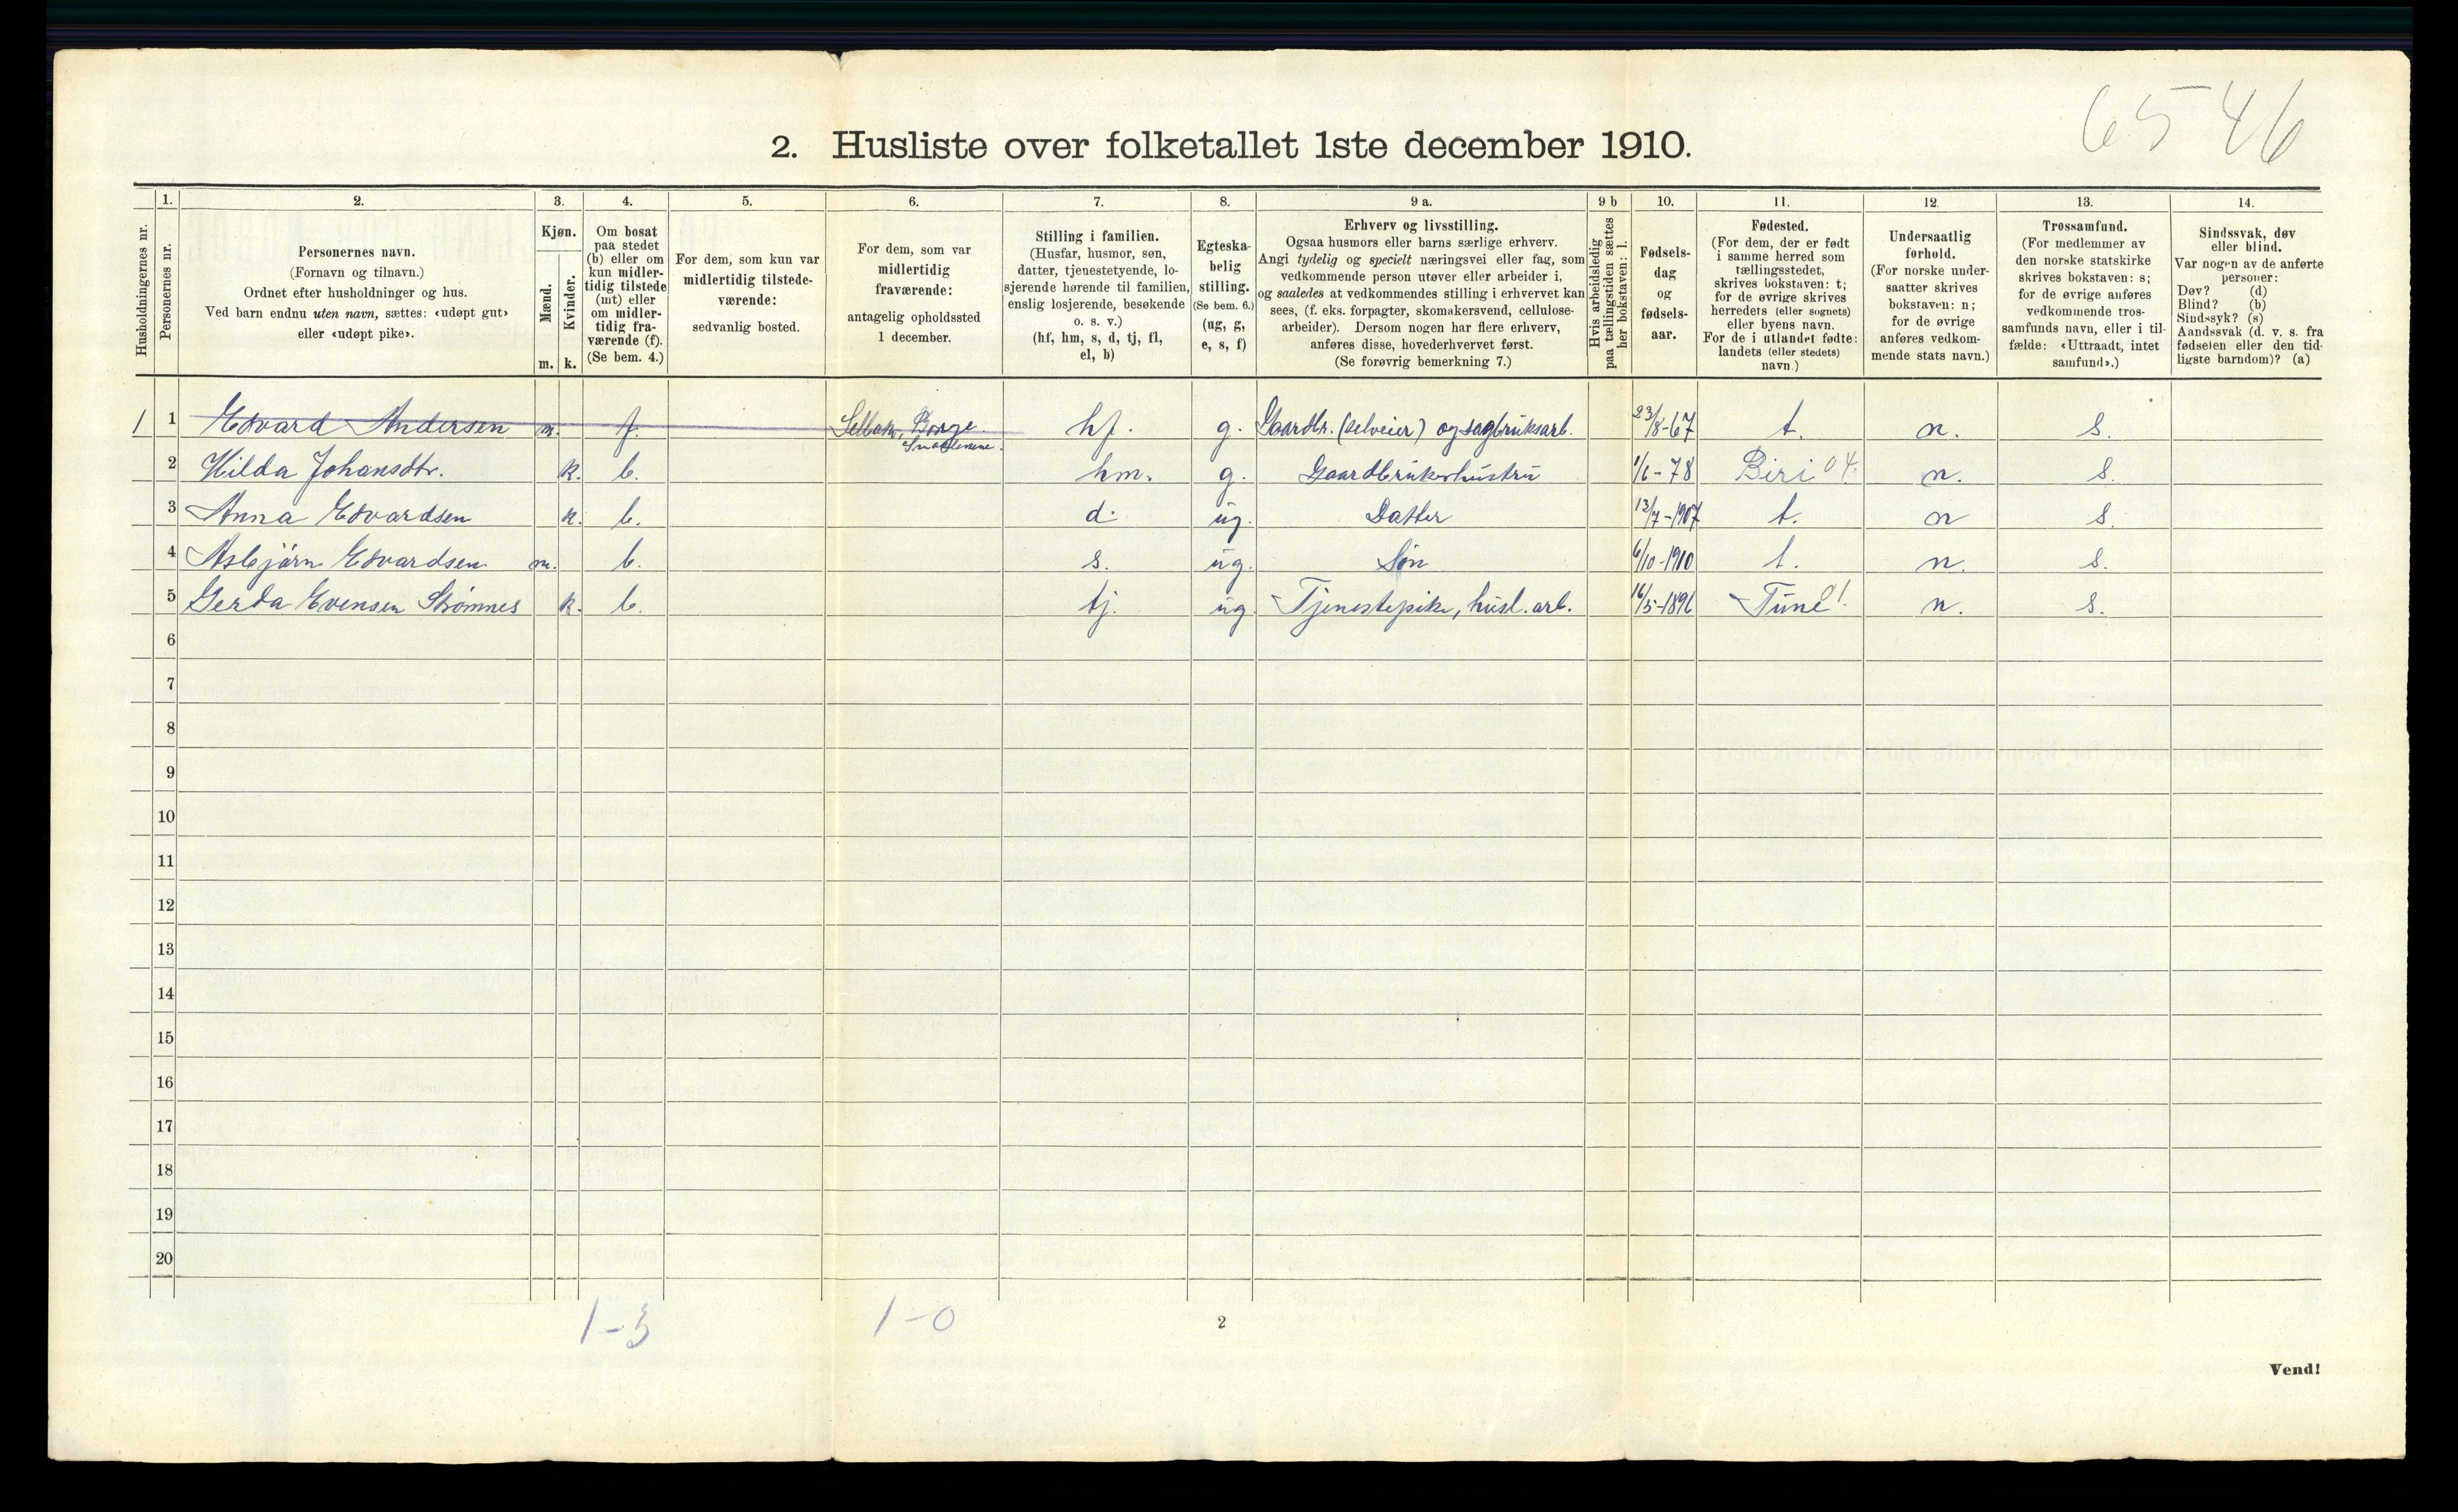 6546
2. Husliste over folketallet 1ste december 1910.
Husholdningernes nr.
1.
Personernes nr.
2.
Personernes navn.
(Fornavn og tilnavn.)
Ordnet efter husholdninger og hus.
Ved barn endnu uten navn, sættes: «udøpt gut»
eller «udøpt pike».
3.
Kjøn.
Mænd.
Kvinder.
m. k.
4.
Om bosat
paa stedet
(b) eller om
kun midler-
tidig tilstede
(mt) eller
om midler-
tidig fra-
værende (f).
(Se bem. 4.)
5.
For dem, som kun var
midlertidig tilstede-
værende:
sedvanlig bosted.
6.
For dem, som var
midlertidig
fraværende:
antagelig opholdssted
1 december.
7.
Stilling i familien.
(Husfar, husmor, søn,
datter, tjenestetyende, lo-
sjerende hørende til familien,
enslig losjerende, besøkende
o. s. v.)
(hf, hm, s, d, tj, fl,
el, b)
8.
Egteska-
belig
stilling.
(Se bem. 6.)
(ug, g,
e, s, f)
9 a.
Erhverv og livsstilling.
Ogsaa husmors eller barns særlige erhverv.
Angi tydelig og specielt næringsvei eller fag, som
vedkommende person utøver eller arbeider i,
og saaledes at vedkommendes stilling i erhvervet kan
sees, (f. eks. forpagter, skomakersvend, cellulose-
arbeider). Dersom nogen har flere erhverv,
anføres disse, hovederhvervet først.
(Se forøvrig bemerkning 7.)
9 b
Hvis arbeidsledig
paa tællingstiden sættes
her bokstaven: l.
10.
Fødsels-
dag
og
fødsels-
aar.
11.
Fødested.
(For dem, der er født
i samme herred som
tællingsstedet,
skrives bokstaven: t;
for de øvrige skrives
herredets (eller sognets)
eller byens navn.
For de i utlandet fødte:
landets (eller stedets)
navn.)
12.
Undersaatlig
forhold.
(For norske under-
saatter skrives
bokstaven: n;
for de øvrige
anføres vedkom-
mende stats navn.)
13.
Trossamfund.
(For medlemmer av
den norske statskirke
skrives bokstaven: s;
for de øvrige anføres
vedkommende tros-
samfunds navn, eller i til-
fælde: «Uttraadt, intet
samfund».)
14.
Sindssvak, døv
eller blind.
Var nogen av de anførte
personer:
Døv? (d)
Blind? (b)
Sindssyk? (s)
Aandssvak (d. v. s. fra
fødselen eller den tid-
ligste barndom)? (a)
1 1 Edvard Andersen m. f. Selbak, Borge Smaalenene. hf. g. Gaardbr. (selveier) og sagbruksarb. 23/8-67 t. n. s.
2 Hilda Johansdtr. k. b. hm. g. Gaardbrukerhustru 1/6-78 Biri 04. n. s.
3 Anna Edvardsen k. b. d. ug. Datter 13/7-1907 t. n s.
4 Asbjørn Edvardsen m. b. s. ug. Søn 6/10-1910 t. n. s.
5 Gerda Evensen Strømnes k. b. tj. ug. Tjenestepike, husl. arb. 16/5-1896 Tune 01. n. s.
6
7
8
9
10
11
12
13
14
15
16
17
18
19
20
1-3 1-0
2
Vend!